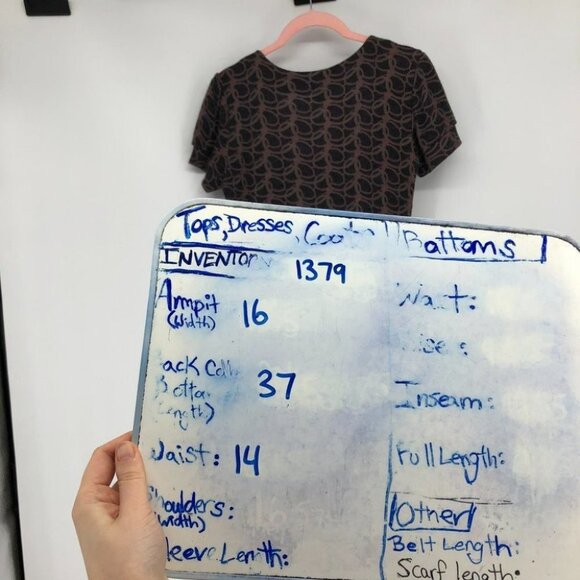 Tops, Dresses, Coats
INVENTORY 1379
Armpit 16
(width)
Back Coll
Botto 37
Length)
Waist: 14
Shoulders:
(width)
Sleeve Length:
Bottoms
Waist:
Rise:
Inseam:
Full Length:
Other
Belt Length:
Scarf length: